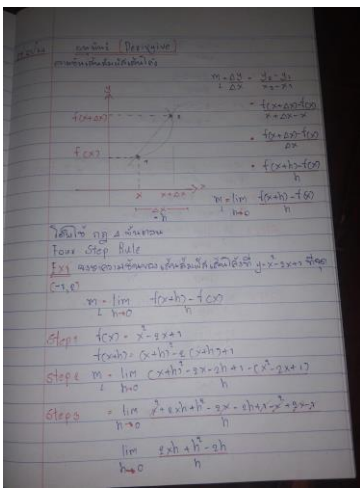 อนุพันธ์ (Derivative)
ความชันเส้นสัมผัสเส้นโค้ง
m = Δy/Δx = y₂-y₁/x₂-x₁
= f(x+Δx)-f(x)/x+Δx-x
= f(x+Δx)-f(x)/Δx
= f(x+h)-f(x)/h
m = lim h→0 f(x+h)-f(x)/h
y
f(x+Δx)
f(x)
x x+Δx x
Δx
h
โดยใช้ กฎ 4 ขั้นตอน
Four Step Rule
Ex1 จงหาความชันของเส้นสัมผัสเส้นโค้งที่ y=x²-2x+1 ที่จุด
m = lim h→0 f(x+h)-f(x)/h
Step1 f(x) = x²-2x+1
f(x+h) = (x+h)²-2(x+h)+1
Step2 m = lim h→0 (x+h)²-2x-2h+1-(x²-2x+1)/h
Step3 = lim h→0 x²+2xh+h²-2x-2h+1-x²+2x-1/h
lim h→0 2xh+h²-2h/h